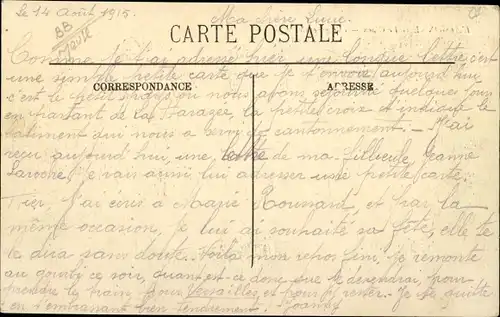 Le 14 Août 1915. Ma chère Lucie.
CARTE POSTALE
Comme je t'ai adressé hier une longue lettre, c'est
une simple petite carte que je t'envoie aujourd'hui
CORRESPONDANCE ADRESSE
c'est le petit où nous avons séjourné quelques jours
en partant de la la petite croix et indique le
bâtiment qui nous a servi de cantonnement - J'ai
reçu aujourd'hui une lettre de ma fillieule, Jeanne
je vais aussi lui adresser une petite carte.
Hier, j'ai écris à Marie et par la
même occasion, je lui ai souhaité sa fête, elle te
le dira sans doute. Voilà mon repos fini, je remonte
au ce soir, quand est-ce donc que je devendrai, pour
prendre le train, pour Versailles et pour y rester. Je te quitte
en t'embrassant bien tendrement.